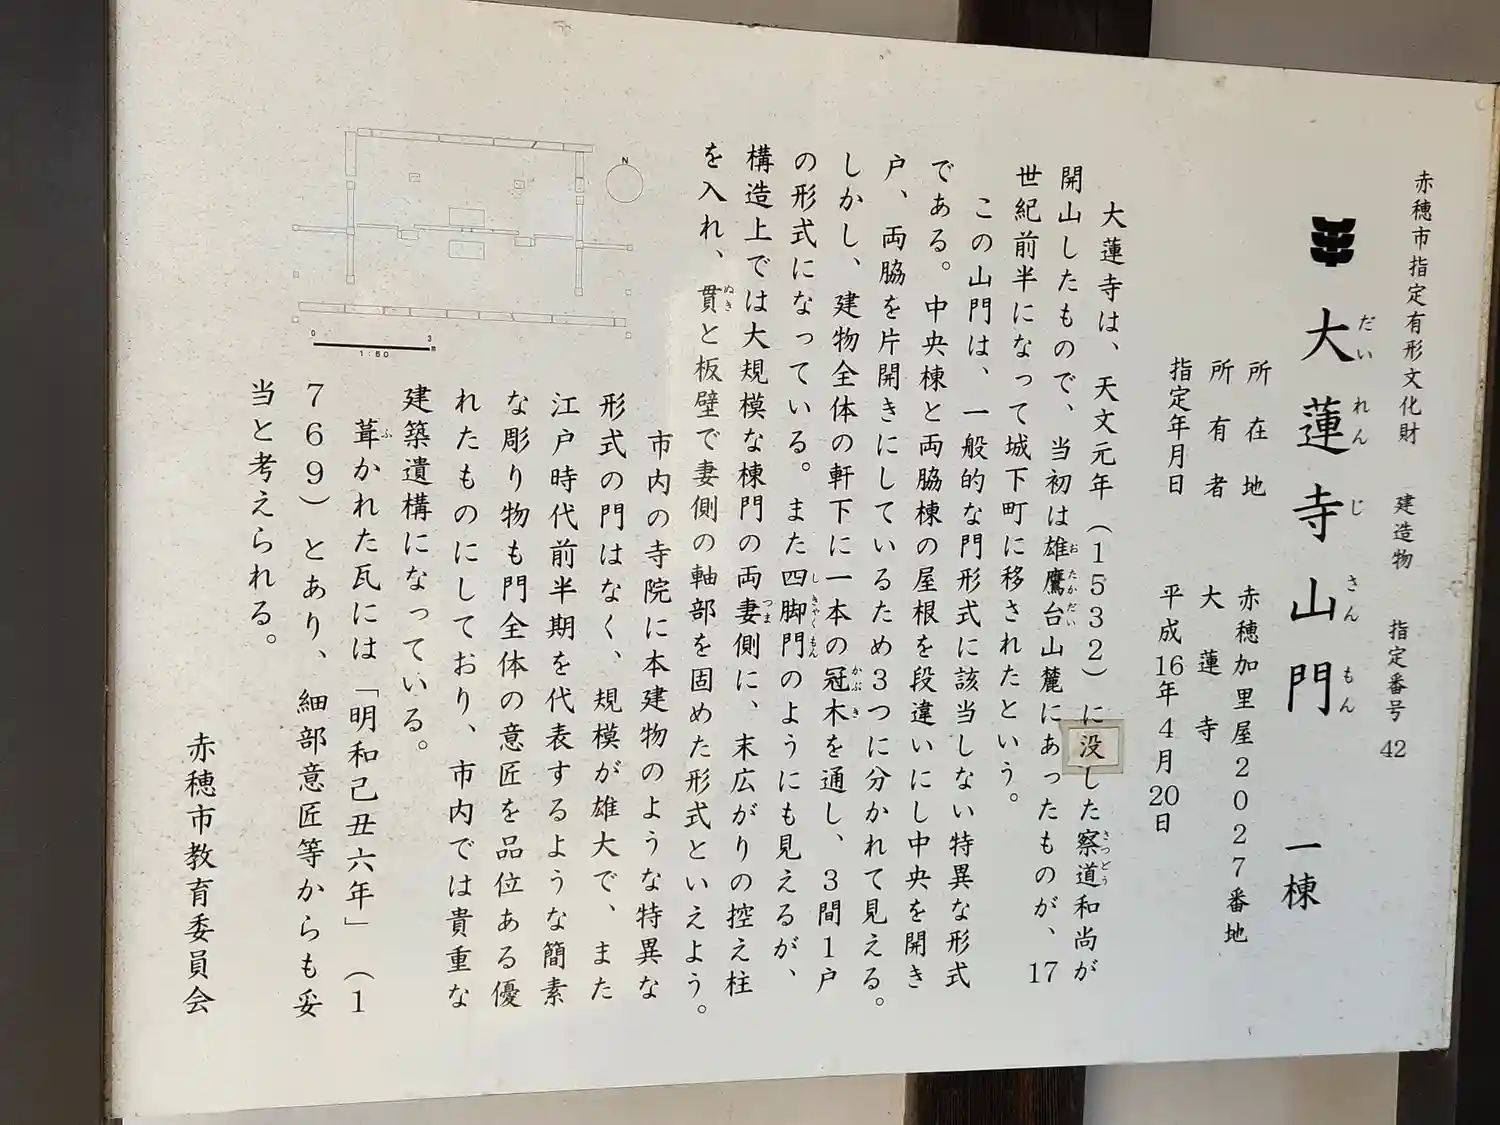 赤穂市指定有形文化財　建造物　指定番号 42
大蓮寺山門　一棟
だいれんじさんもん
所在地　赤穂加里屋2027番地
所有者　大蓮寺
指定年月日　平成16年4月20日
大蓮寺は、天文元年（1532）に没した察道和尚が
さつどう
開山したもので、当初は雄鷹台山麓にあったものが、17
おたかだい
世紀前半になって城下町に移されたという。
この山門は、一般的な門形式に該当しない特異な形式
である。中央棟と両脇棟の屋根を段違いにし中央を開き
戸、両脇を片開きにしているため3つに分かれて見える。
しかし、建物全体の軒下に一本の冠木を通し、3間1戸
かぶき
の形式になっている。また四脚門のようにも見えるが、
しきゃくもん
構造上では大規模な棟門の両妻側に、末広がりの控え柱
つま
を入れ、貫と板壁で妻側の軸部を固めた形式といえよう。
ぬき
市内の寺院に本建物のような特異な
形式の門はなく、規模が雄大で、また
江戸時代前半期を代表するような簡素
な彫り物も門全体の意匠を品位ある優
れたものにしており、市内では貴重な
建築遺構になっている。
葺かれた瓦には「明和己丑六年」（1
ふ
769）とあり、細部意匠等からも妥
当と考えられる。
赤穂市教育委員会
N
0 3 m
1:60